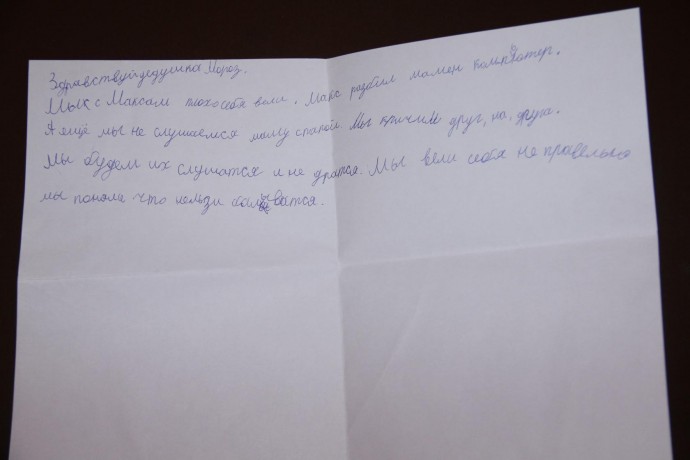 Здравствуй дедушка Мороз.
Мы с Максам плохо себя вели. Макс разбил мамен компьютер.
А ещё мы не слушаемся маму спапой. Мы кричим друг, на, друга.
Мы будем их слушатся и не дратся. Мы вели себя не правельно
мы поняли что нельзи баловатся.